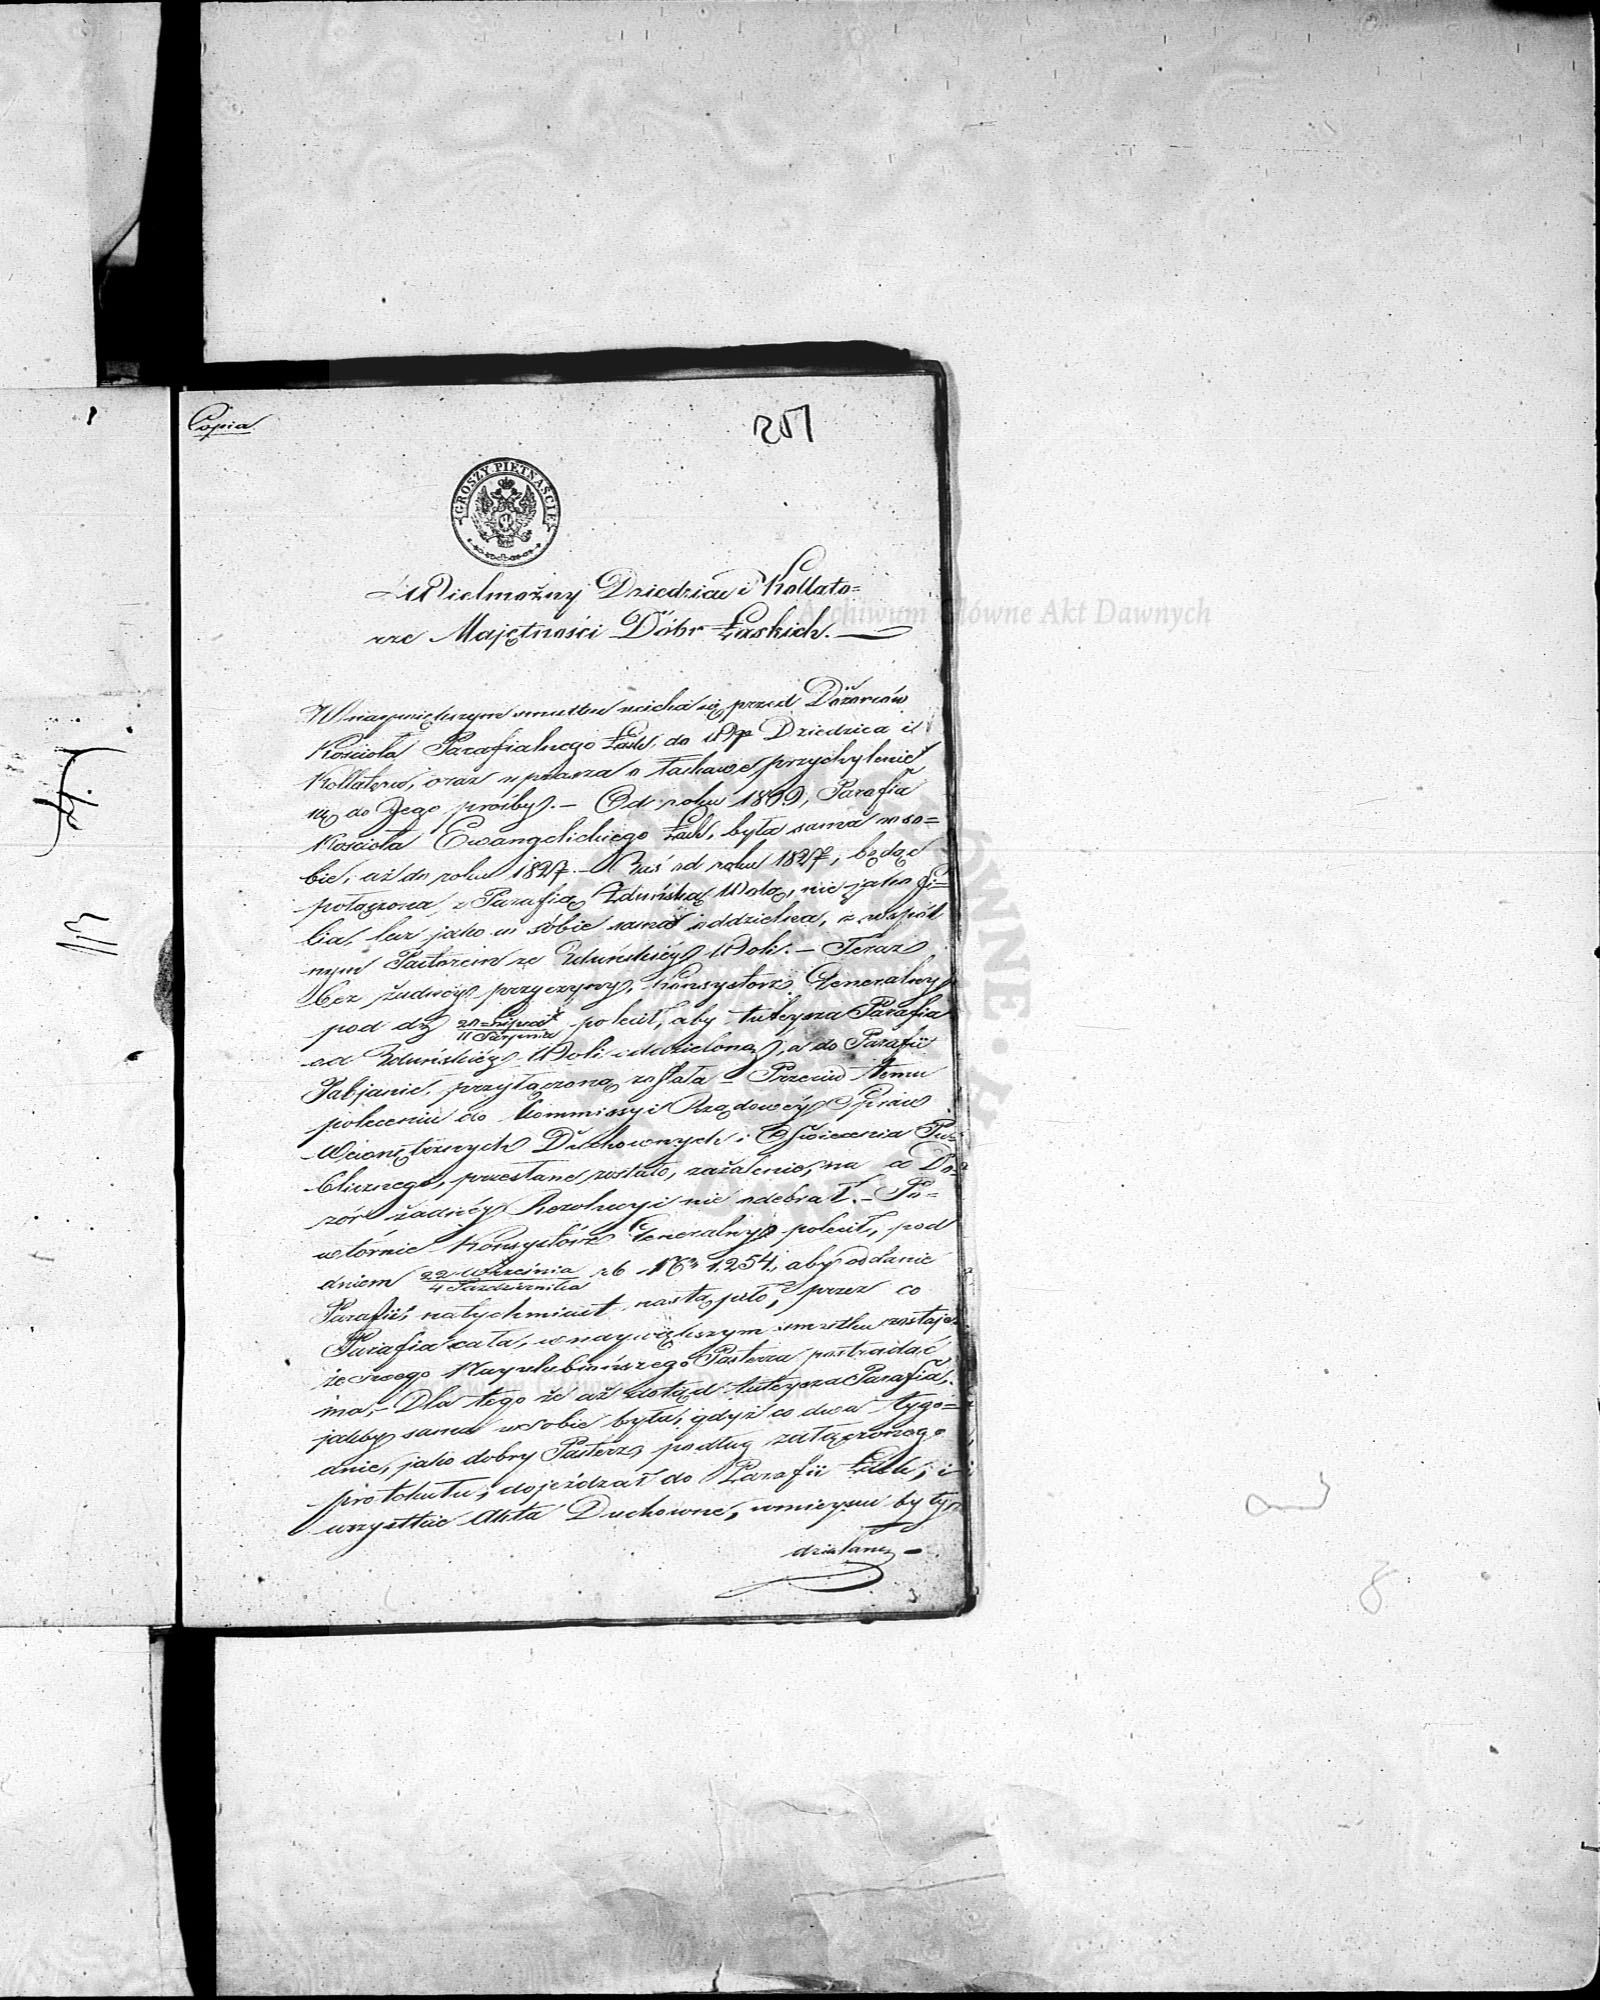 Copia
GROSZY PIĘTNAŚCIE
Wielmożny Dziedzicu i Kollato=
rze Majętności Dóbr Łaskich.
W naywiększym smutku ucieka się przed Dozorców
Kościoła Parafialnego Łask, do WP Dziedzica i
Kollatora, oraz uprasza o łaskawe przychylenie
się do Jego prośby. – Od roku 1809, Parafia
Kościoła Ewangelickiego Łask, była sama w so=
bie, aż do roku 1827. – Zaś od roku 1827, będąc
połączona z Parafią Zduńską Wolą, nie jako Fi=
lia, lecz jako w sobie sama oddzielna, z wspól
nym Pastorem ze Zduńskiéy Woli. – Teraz
bez żadnéy przyczyny, Konsystorz Generalny
pod d. 11 Sierpnia polecił, aby tuteysza Parafia
od Zduńskiéy Woli oddzieloną, a do Parafii
Pabjanic, przyłączoną została – Przeciw temu
poleceniu do Kommissyi Rządowéy Spraw
Wewnętrznych Duchownych i Oświecenia Pu=
blicznego, przesłane zostało, zażalenie, na co Do=
zór żadnéy Rezolucyi nie odebrał. – Po=
wtórnie Konsystorz Generalny polecił, pod
dniem 22 Września / 4 Października rb No 1254, aby oddanie
Parafii, natychmiast nastąpiło, przez co
Parafia cała, w naywiększym smutku zostaje,
że swego Nayulubieńszego Pasterza postradać
ma, – Dla tego że aż dotąd tuteysza Parafia,
jakby sama w sobie była, gdyż co dwa tygo=
dnie, jako dobry Pasterz, podług załączonego
protokułu, dojeżdzał do Parafii Łask, i
wszystkie Akta Duchowne, w mieyscu były
działane, –
Archiwum Główne Akt Dawnych
8